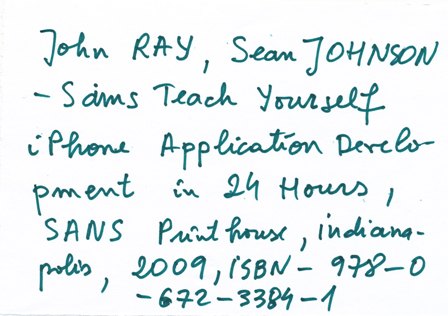 John RAY, Sean JOHNSON
- Sams Teach Yourself
iPhone Application Develo-
pment in 24 Hours,
SANS Printhouse, indiana-
polis, 2009, iSBN - 978-0
-672-3384-1